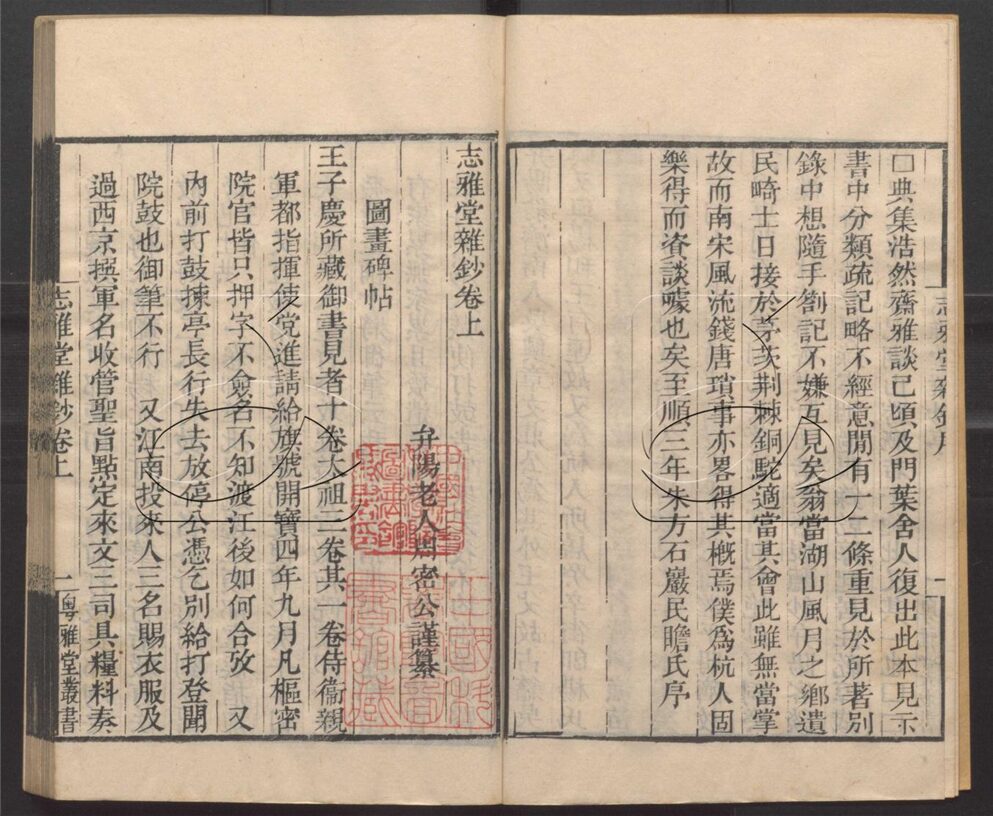 □典集浩然齋雅談已頃及門葉舍人復出此本見示
書中分類疏記略不經意閒有一二條重見於所著別
錄中想隨手劄記不嫌互見矣翁當湖山風月之鄉遺
民畸士日接於茅茨荆棘銅駝適當其會此雖無當掌
故而南宋風流錢唐瑣事亦畧得其槪焉僕爲杭人固
樂得而資談噱也矣至順三年朱方石巖民瞻氏序
志雅堂雜鈔序
一
志雅堂雜鈔卷上
弁陽老人周密公謹纂
圖畫碑帖
王子慶所藏御書見者十卷太祖三卷其一卷侍衞親
軍都指揮使党進請給旗號開寶四年九月凡樞密
院官皆只押字不僉名不知渡江後如何合攷 又
內前打鼓揀亭長行失去放停公憑乞別給打登聞
院鼓也御筆不行 又江南投來人三名賜衣服及
過西京撰軍名收管聖旨點定來文三司具糧料奏
志雅堂雜鈔卷上
一
粤雅堂叢書